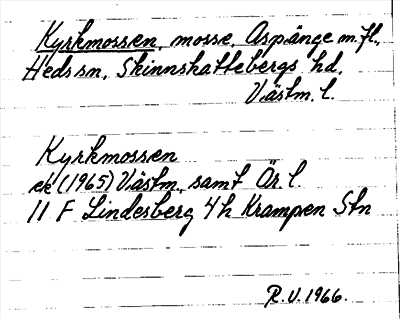 Kyrkmossen, mosse, Aspänge m.fl.,
Heds sn, Skinnskattebergs hd,
Västm. l.
Kyrkmossen
ek (1965) Västm. samt Ör. l.
11 F Lindesberg 4h Krampen Stn
R.V. 1966.